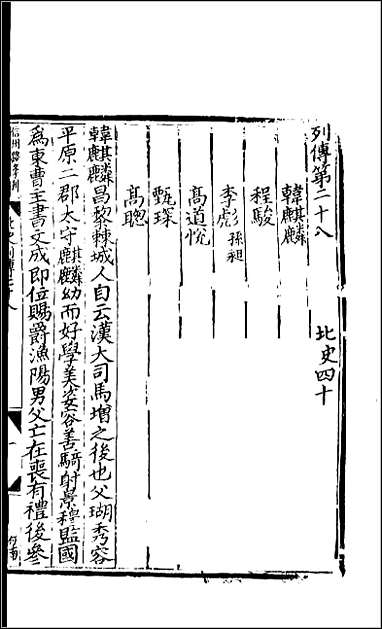 列傳第二十八 北史四十
韓麒麟
程駿
李彪 孫昶
高道悅
甄琛
高聰
韓麒麟昌黎棘城人自云漢大司馬增之後也父瑚秀容
平原二郡太守麒麟幼而好學美姿容善騎射景穆監國
爲東曹主書文成即位賜爵漁陽男父亡在喪有禮後參
信州路學刊
北史列傳二十八